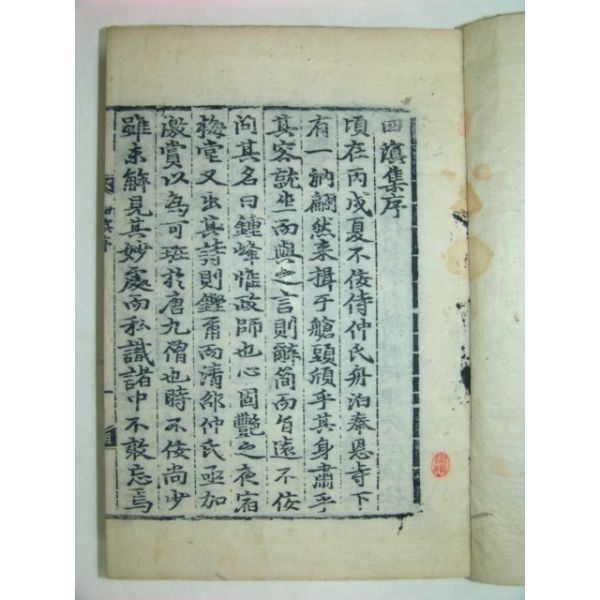 四溟集序
頃在丙戌夏不佞侍仲氏舟泊奉恩寺下
有一衲翩然来揖于艙頭頎乎其身肅乎
其容就坐而與之言則辭簡而旨遠不佞
问其名曰鍾峰惟政師也心固艷之夜宿
梅堂又出其詩則鏗爾而清仲氏亟加
激賞以爲可班於唐九僧也時不佞尚少
雖未觧見其妙處而私識諸中不敢忘焉